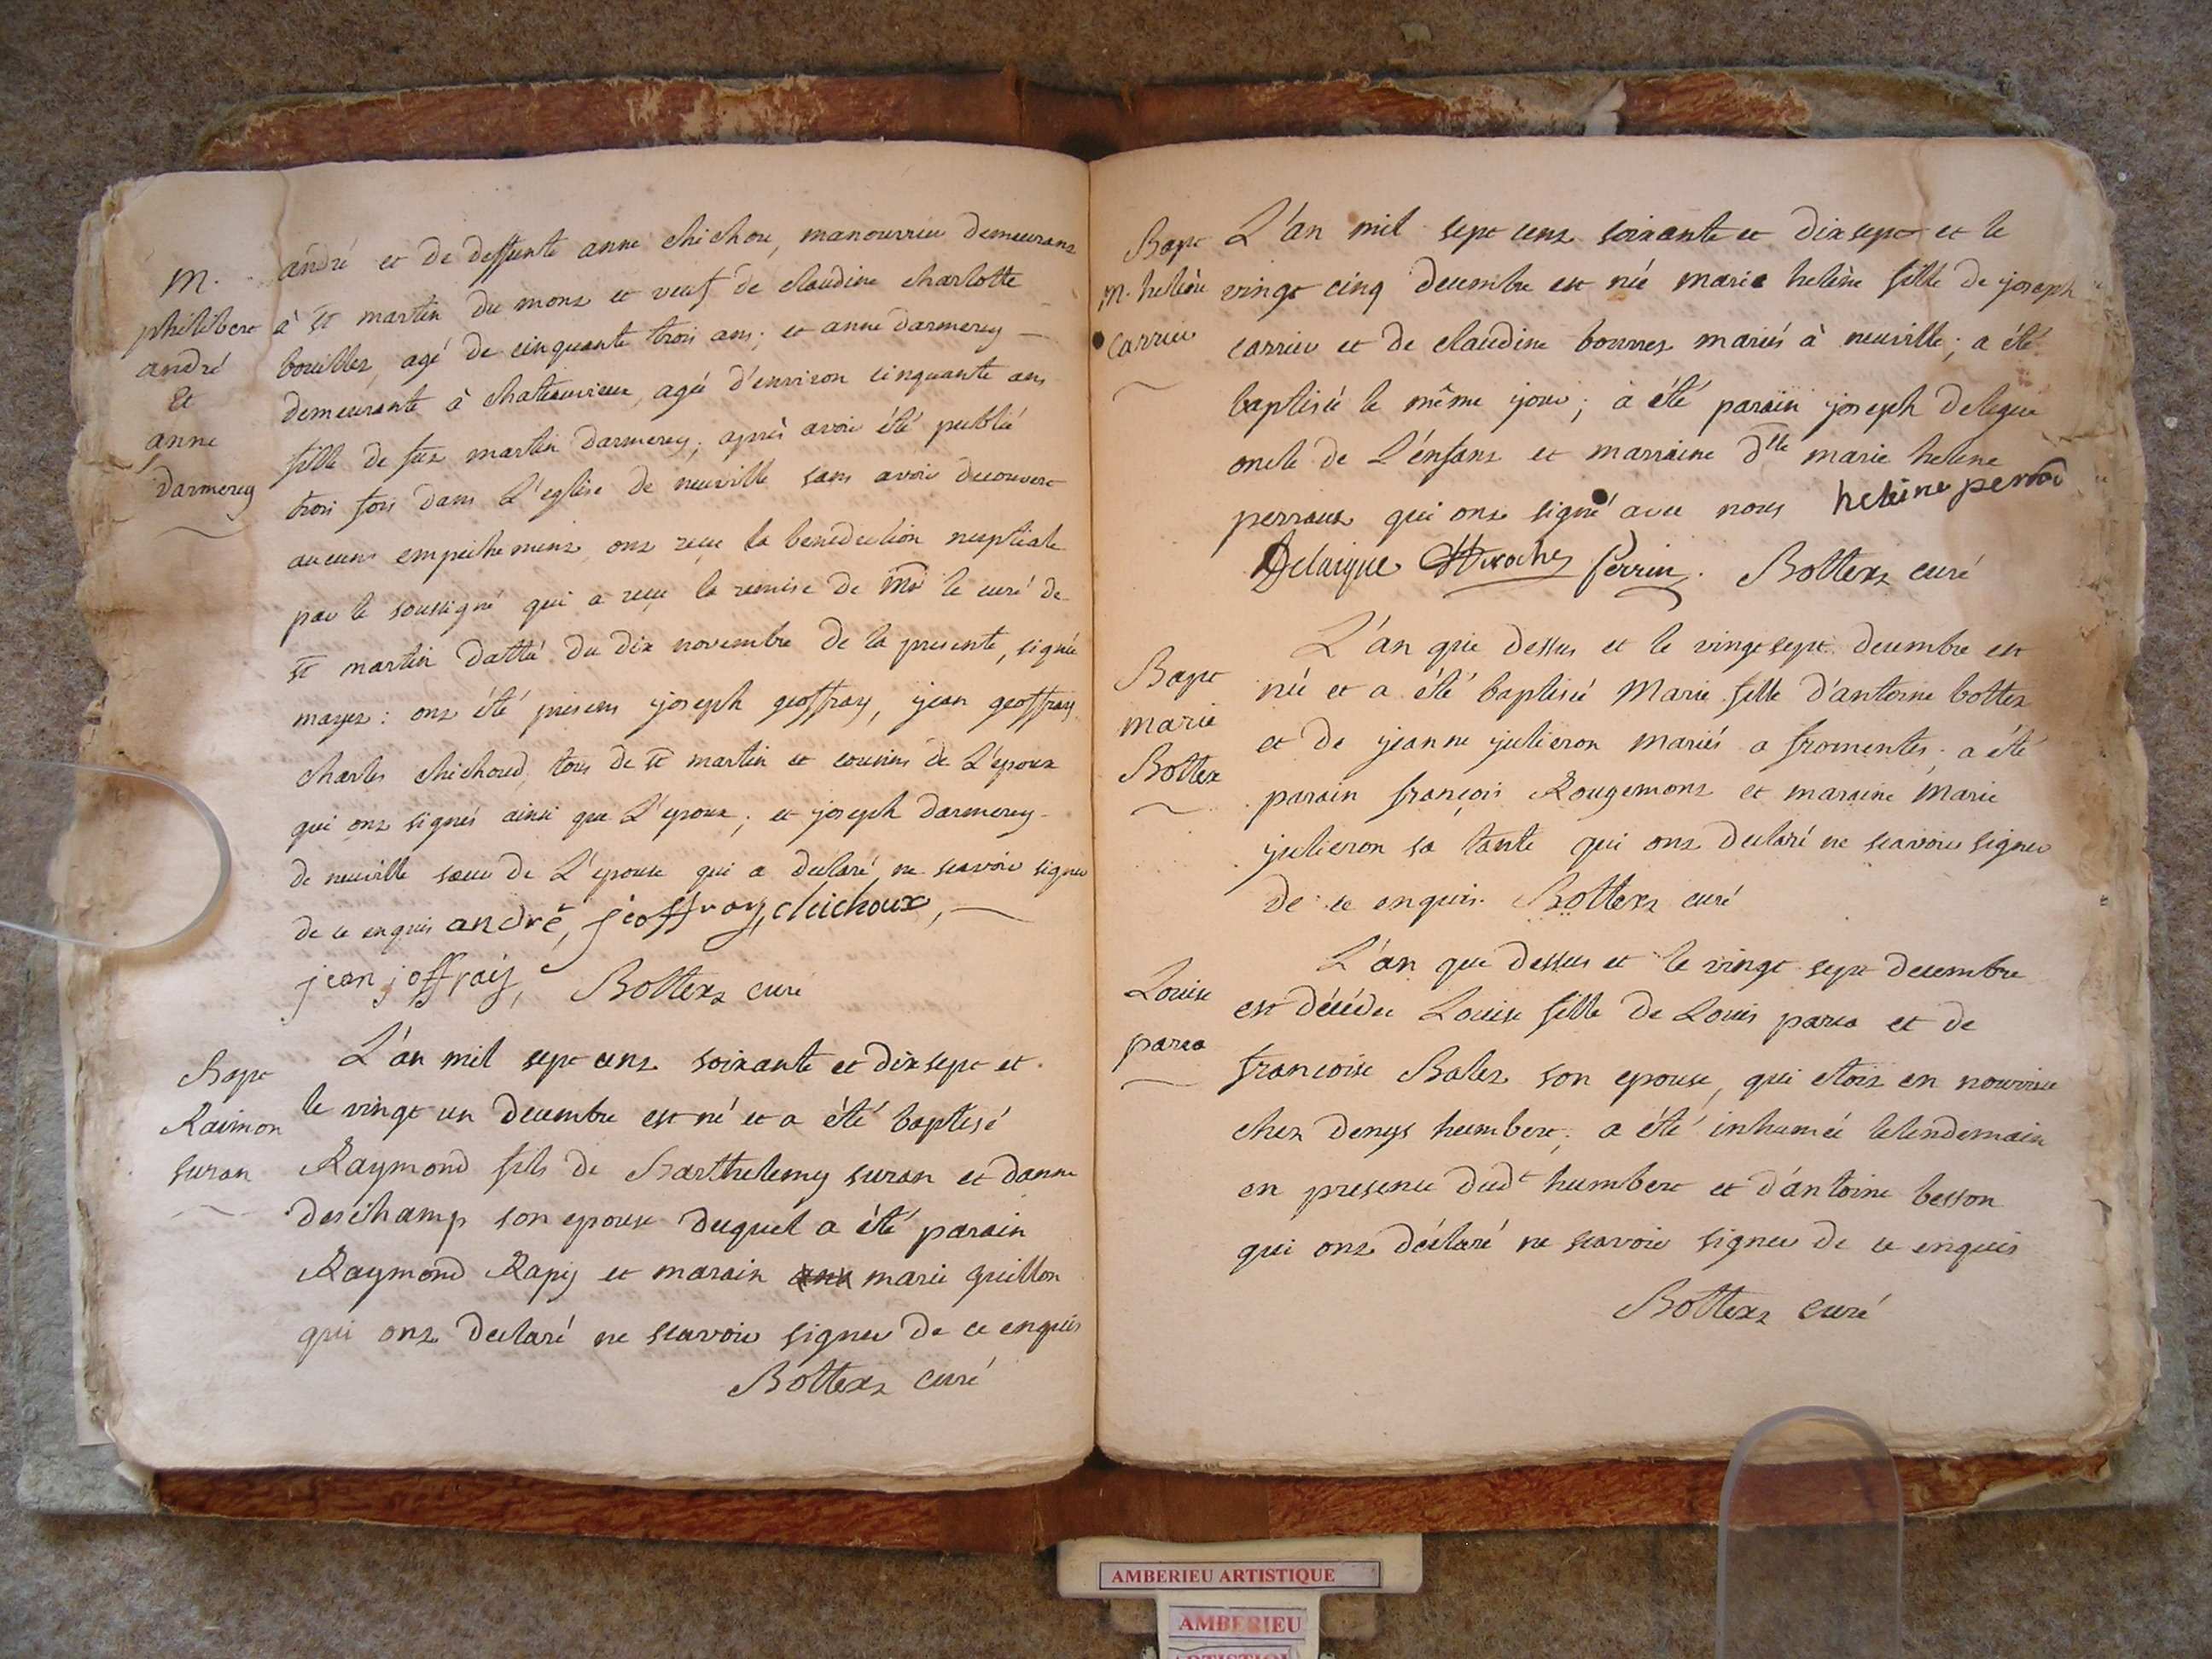 M.
philibert
andré
Et
anne
Darmerey
andré et de deffunte anne chichou, manouvrier demeurant
à st martin du mont et veuf de claudine charlotte
bouillet, agé de cinquante trois ans; et anne darmerey
demeurante à chateauvieux, agée d'environ cinquante ans
fille de fut martin darmerey; après avoir été publié
trois fois dans L'eglise de neuville sans avoir decouvert
aucuns empechemens, ont reçu la benediction nuptiale
par le soussigné qui a reçu la remise de Mr le curé de
st martin dattée du dix novembre de la presente, signée
mayet: ont été presens joseph geoffray, jean geoffray
charles chichoud, tous de st martin et cousins de L'epoux
qui ont signés ainsi que L'epoux; et joseph darmerey
de neuville sœur de L'epouse qui a declaré ne scavoir signer
de ce enquis andré, jeoffray, chichoux,
jean joffray, Bottex curé
Bapt
Raimon
suran
L'an mil sept cent soixante et dix sept et
le vingt un decembre est né et a été baptisé
Raymond fils de Barthelemy suran et danne
deschamp son epouse duquel a été parain
Raymond Rapy et marain marie guillon
qui ont declaré ne scavoir signer de ce enquis
Bottex curé
Bapt
m. helène
carrier
L'an mil sept cent soixante et dix sept et le
vingt cinq decembre est née marie helène fille de joseph
carrier et de claudine bourret mariés à neuville; a été
baptisée le même jour; à été parain joseph delegue
oncle de L'enfant et marraine dlle marie helene
perraut qui ont signé avec nous helene perrod
Delaigue Perrin. Bottex curé
Bapt
marie
Bottex
L'an que dessus et le vingt sept decembre est
née et a été baptisée Marie fille d'antoine bottex
et de jeanne julieron mariés a fromentes; a été
parain françois Rougemont et maraine Marie
julieron sa tante qui ont declaré ne scavoir signer
de ce enquis. Bottex curé
Louise
parca
L'an que dessus et le vingt sept decembre
est décédée Louise fille de Louis parca et de
francoise Balet son epouse, qui etoit en nourrice
chez denys humbert; a été inhumée lelendemain
en presence dudt humbert et d'antoine besson
qui ont déclaré ne scavoir signer de ce enquis
Bottex curé
AMBERIEU ARTISTIQUE
AMBERIEU
ARTISTIQUE